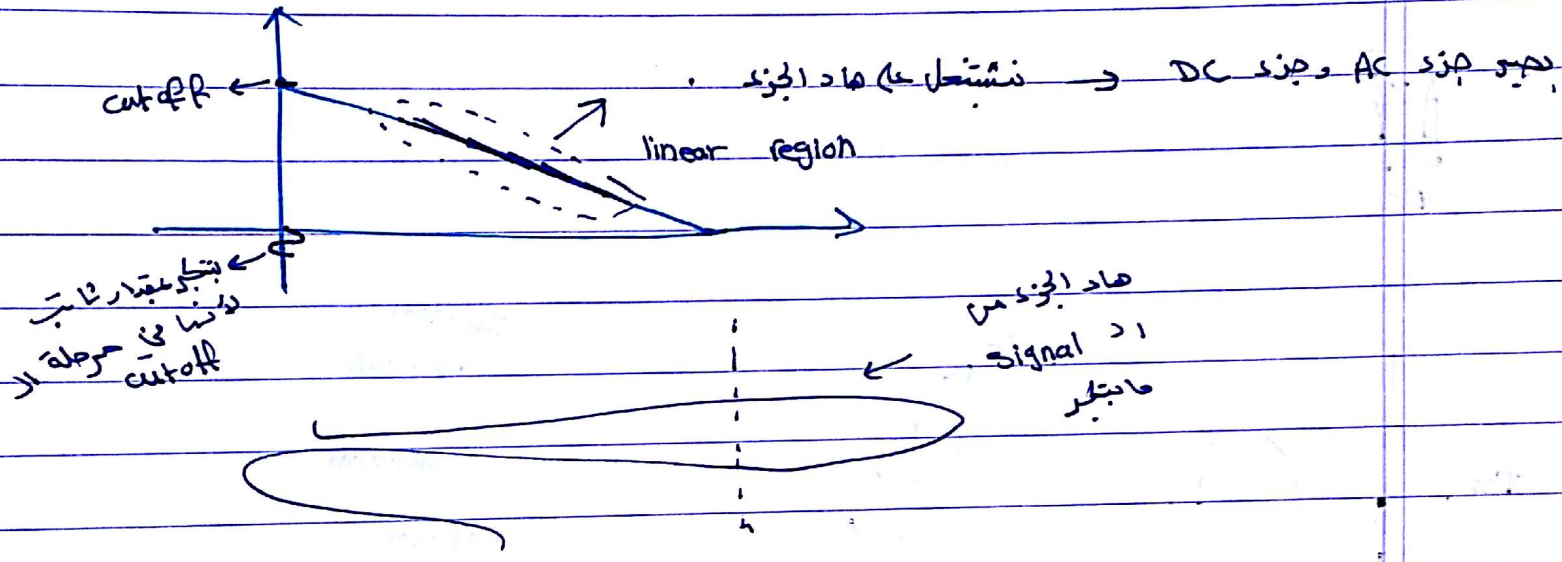 بصير جزء AC وجزء DC → نشتغل على هاد الجزء .
cutoff ←
linear region
بتكبر بمقدار ثابت
لأنها في مرحلة الـ
cutoff
هاد الجزء من
الـ signal
ما بتكبر